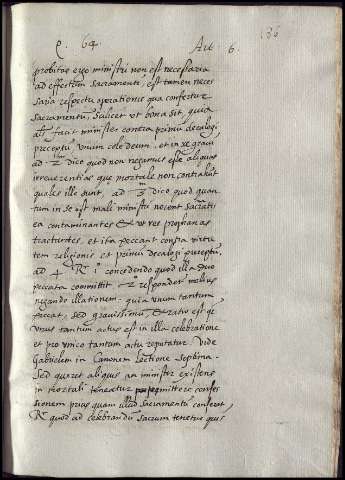 q. 64. Art 6. 186
probitas ergo ministri non est necessaria
ad effectum sacramenti, est tamen neces
saria respectu operationis qua confertur
sacramentu, scilicet ut bona sit, quia
alr facit minister contra primu decalogi
preceptu, unum cole deum, et in re gravi
ad 2m dico quod non negamus esse aliquas
irreverentias que mortale non contrahut
quales ille sunt, ad 3m dico quod quan
tum in se est mali ministri nocent sacratis
ea contaminantes & ut res prophanas
tractantes, et ita peccant contra virtu
tem religionis et primu decalogi preceptu,
ad 4 R i concedendo quod illa duo
peccata committit. 2 respondet melius
negando illationem. quia unum tantum
peccat, sed gravissimu, & ratio est qe
unus tantum actus est in illa celebratione
et pro unico tantum actu reputatur. Vide
Gabrielem in Canonem Lectione septima.
Sed quaret aliquis an minister existens
in mortali tenetur premittere confes
sionem prius quam illud sacramentu conferet,
R quod ad celebrandu sacrum tenetur quis